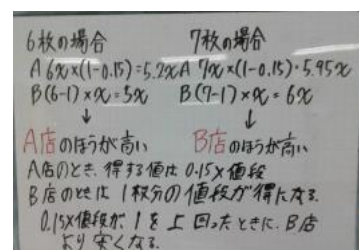 6枚の場合 7枚の場合
A 6x×(1-0.15)=5.2x A 7x×(1-0.15)=5.95x
B(6-1)×x=5x B(7-1)×x=6x
↓ ↓
A店のほうが高い B店のほうが高い
A店のとき、得する値は0.15×値段
B店のときは1枚分の値段が得になる.
0.15×値段が、1を上回ったときに、B店
より安くなる.